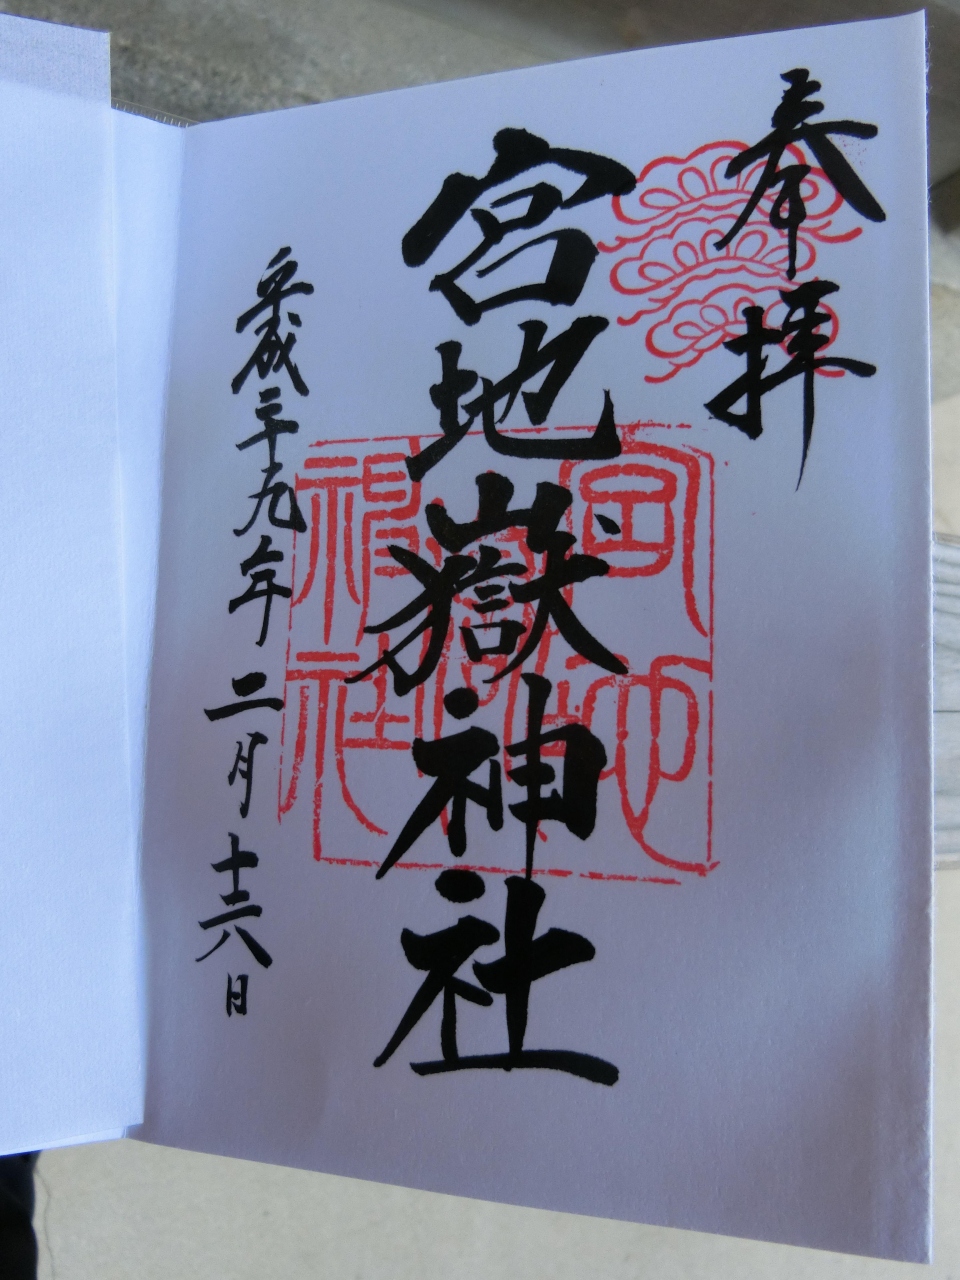 奉拝
宮地嶽神社
宮地嶽神社
平成二十九年二月十六日